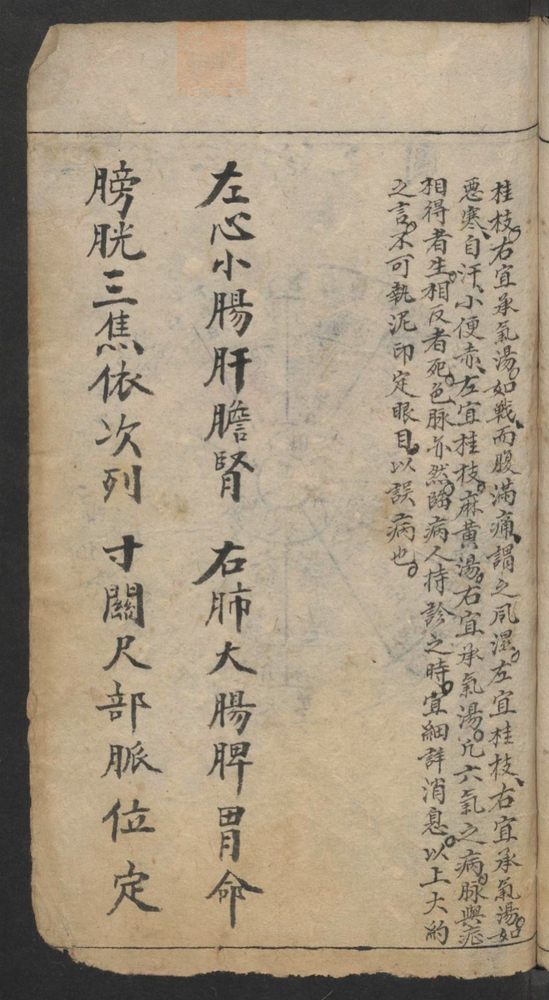 桂枝。右宜承氣湯。如戰而腹滿痛、謂之凮濕。左宜桂枝、右宜承氣湯。如
惡寒、自汗、小便赤、左宜桂枝。麻黃湯。右宜承氣湯。凢六氣之病。脉與症
相得者生。相反者死。色脉亦然。臨病人持診之時。宜細詳消息。以上大約
之言。不可執泥印定眼目。以誤病也。
左心小腸肝膽腎 右肺大腸脾胃命
膀胱三焦依次列 寸關尺部脈位定